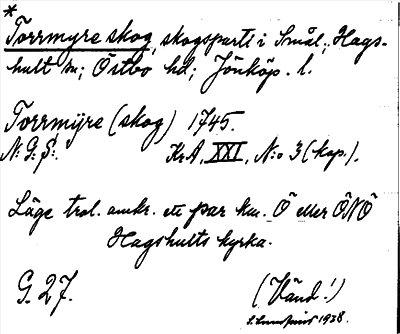 *
Torrmyre skog, skogsparti i Smål., Hags-
hult sn; Östbo hd; Jönköp. l.
Torrmÿre (skog) 1745.
N: G: S:. KrA, XXI, N:o 3 (kop.).
Läge trol. omkr. ett par km. Ö eller ÖNÖ
Hagshults kyrka.
G. 27. (Vänd!)
1938.